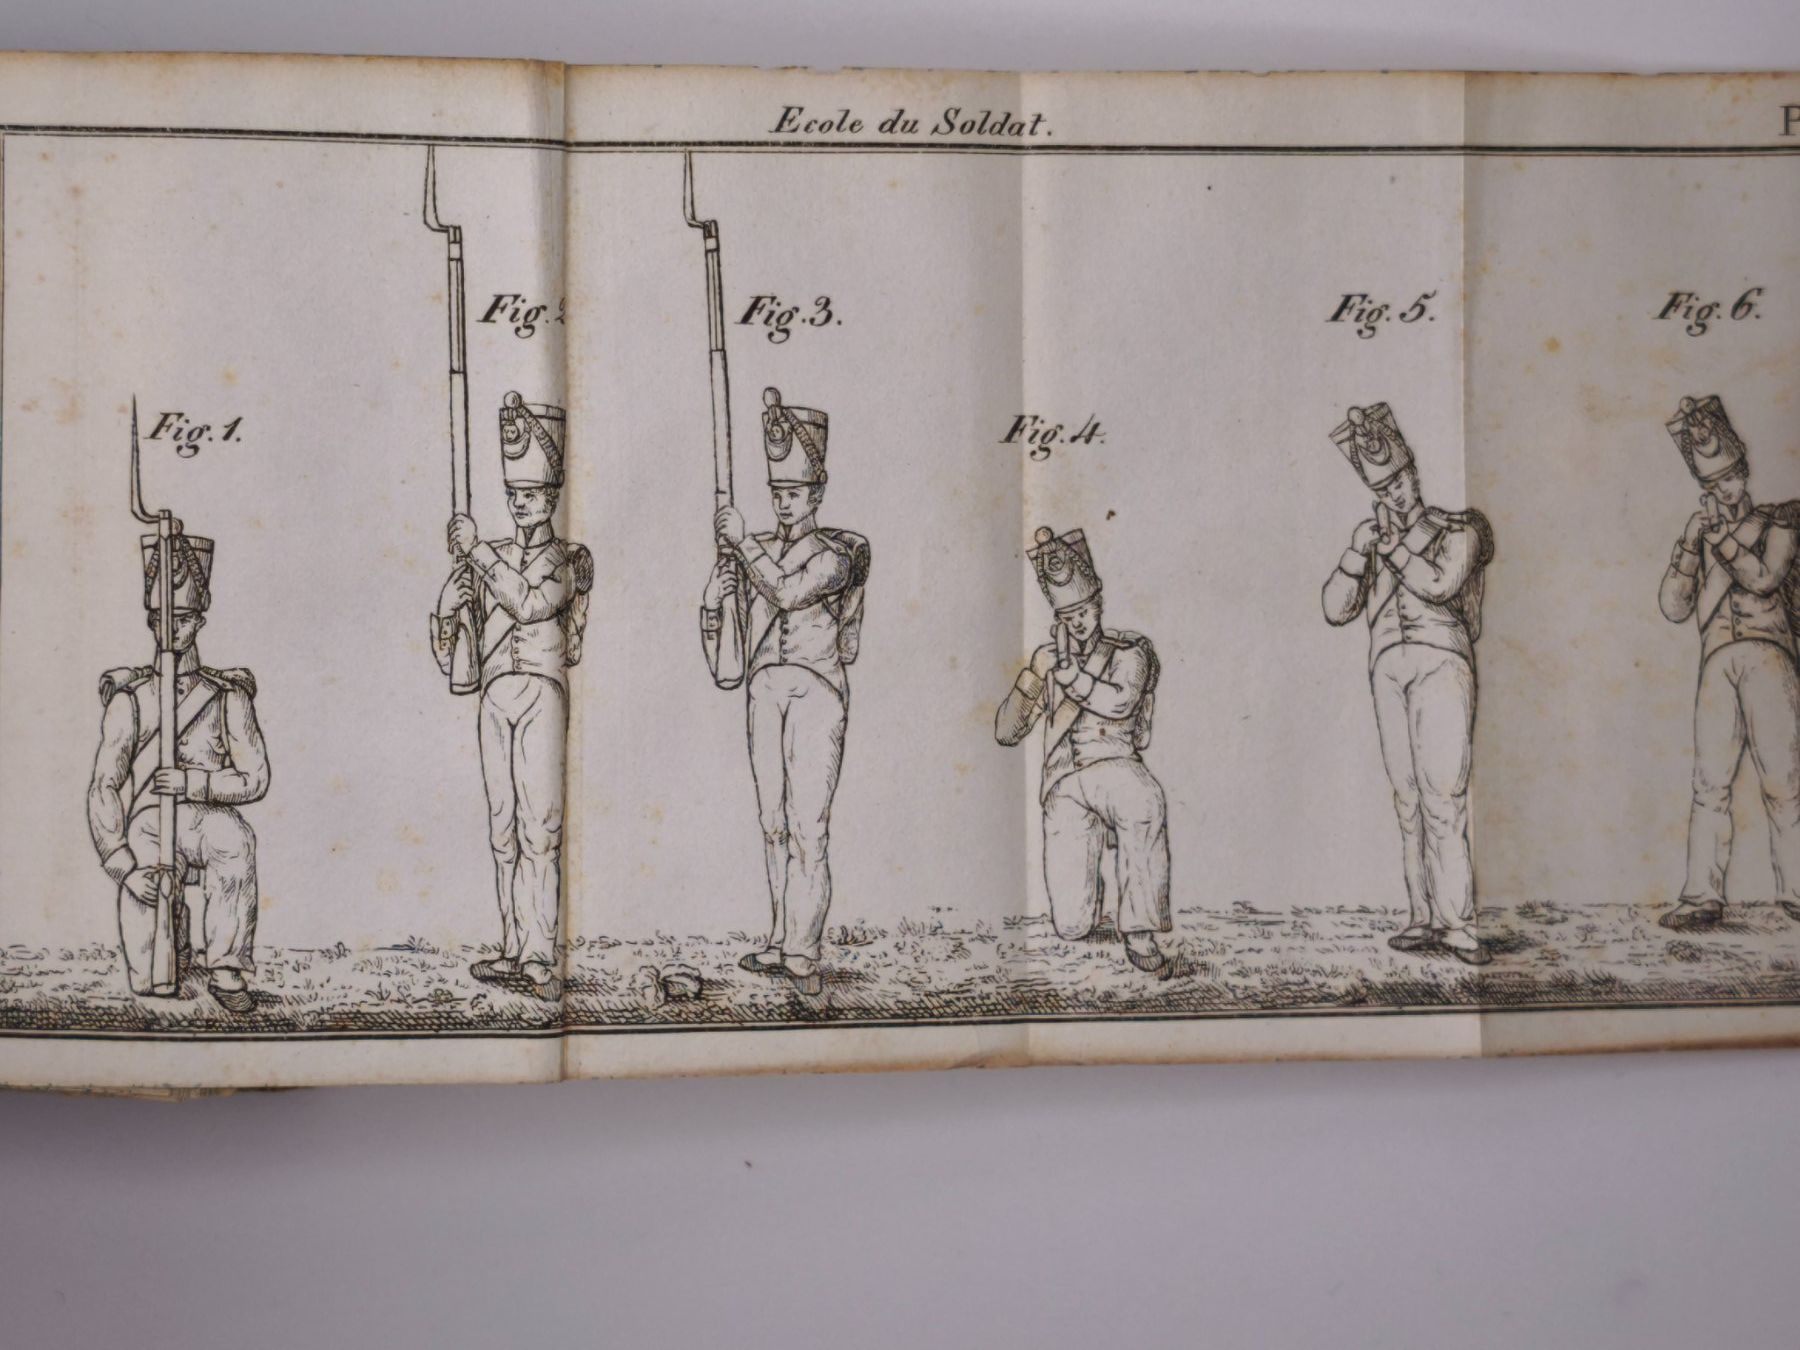 Ecole du Soldat.
P
Fig. 1.
Fig. 2
Fig. 3.
Fig. 4.
Fig. 5.
Fig. 6.